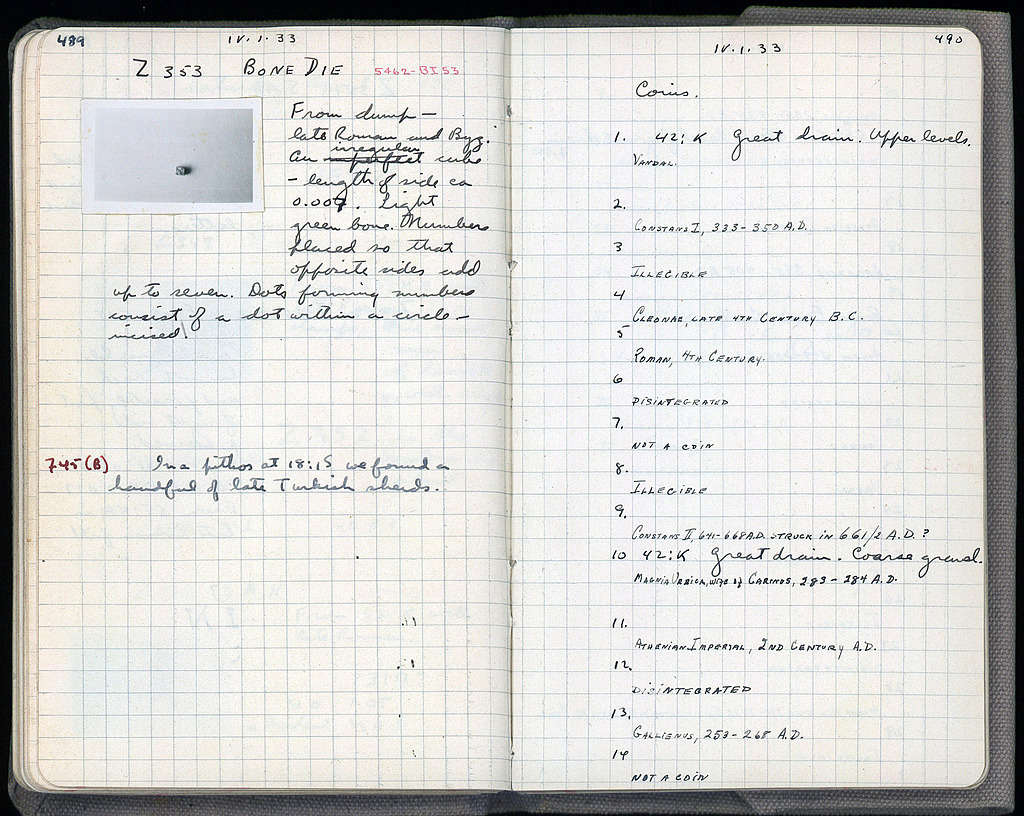 489
IV.1.33
Z 353 BONE DIE 5462-BI 53
From dump —
late Roman and Byz.
irregular
An imperfect cube
— length of side ca
0.007. Light
green bone. Numbers
placed so that
opposite sides add
up to seven. Dots forming numbers
consist of a dot within a circle —
incised.
745 (B) In a pithos at 18:15 we found a
handful of late Turkish sherds.
IV.1.33
490
Coins.
1. 42:K Great drain. Upper levels.
VANDAL.
2.
CONSTANS I, 333-350 A.D.
3
ILLEGIBLE
4
CLEONAE, LATE 4TH CENTURY B.C.
5
ROMAN, 4TH CENTURY.
6
DISINTEGRATED
7.
NOT A COIN
8.
ILLEGIBLE
9.
CONSTANS II, 641-668 A.D. STRUCK IN 661/2 A.D. ?
10 42:K Great drain. Coarse gravel.
MAGNIA URBICA, WIFE of CARINOS, 283-284 A.D.
11.
ATHENIAN IMPERIAL, 2ND CENTURY A.D.
12.
DISINTEGRATED
13.
GALLIENUS, 253-268 A.D.
14
NOT A COIN